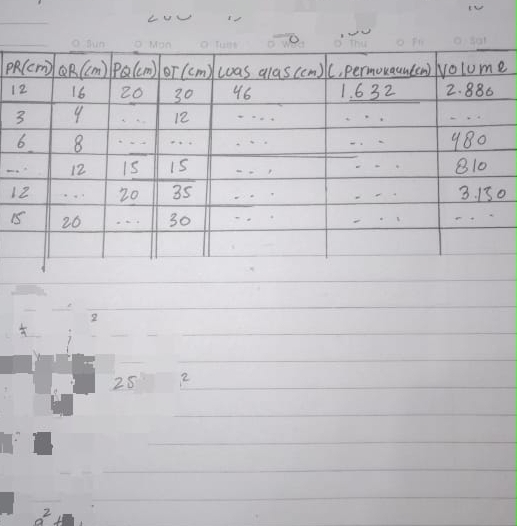 Sun Mon Tues Wed Thu Fri Sat
PR(cm) QR(cm) PQ(cm) QT(cm) Luas alas(cm) L.permukaan(cm) Volume
12 16 20 30 46 1.632 2.880
3 4 ... 12 .... ... ...
6 8 ... ... ... ... 480
... 12 15 15 ... ... 810
12 ... 20 35 ... ... 3.130
15 20 ... 30 ... ... ...
2
25 2
a² +